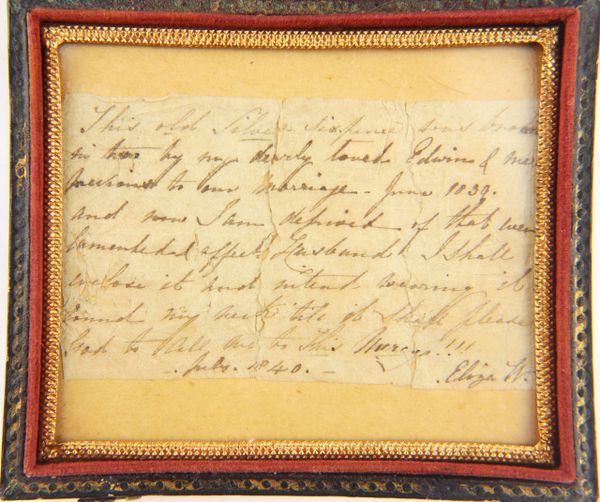 This old Silver Sixpence was broken
in two by my dearly loved Edwin & me
previous to our marriage - June 1839.
and now I am deprived of that ever
lamented affect. Husband I shall
enclose it and intend wearing it
round my neck till it shall please
God to call me to His Mercy!!!
- July. 1840. -
Eliza W.